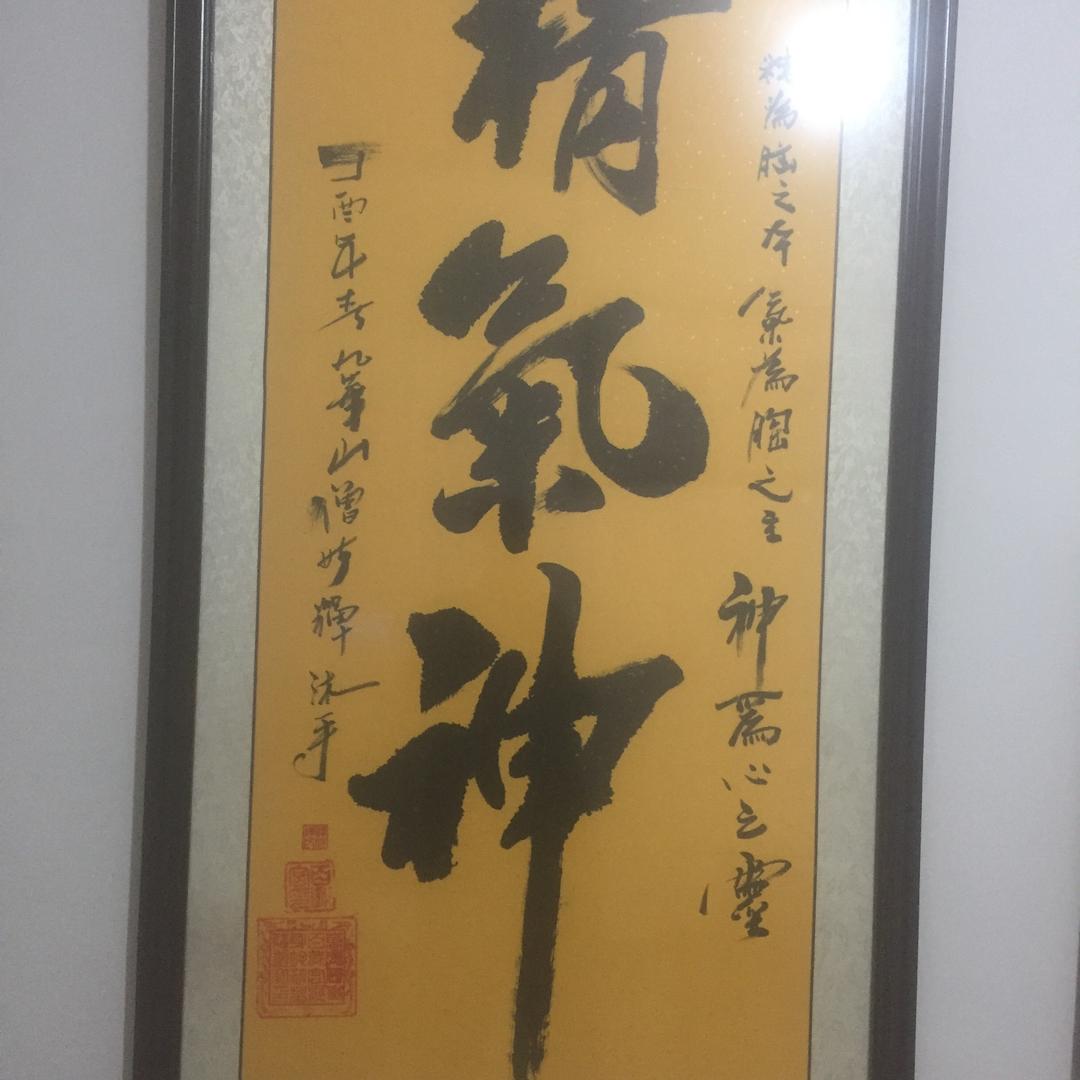 精為腦之本 氣為胸之主 神爲心之靈
精氣神
丁酉年春九華山僧妙沐手